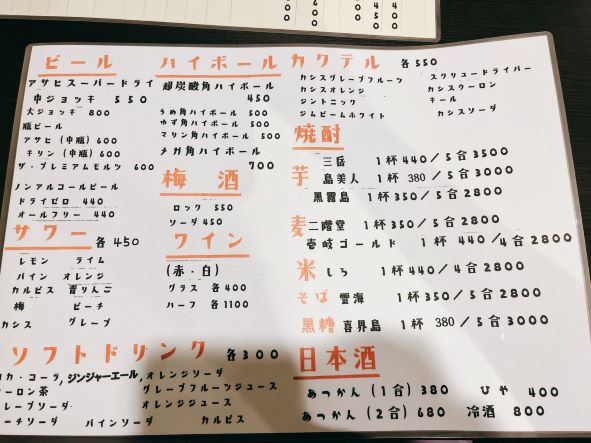 ビール
アサヒスーパードライ
中ジョッキ 550
大ジョッキー 800
瓶ビール
アサヒ (中瓶) 600
キリン (中瓶) 600
ザ・プレミアムモルツ 600
ノンアルコールビール
ドライゼロ 440
オールフリー 440
サワー 各450
レモン ライム
パイン オレンジ
カルピス 青りんご
梅 ピーチ
カシス グレープ
ハイボール
超炭酸角ハイボール
450
うめ角ハイボール 500
ゆず角ハイボール 500
マリン角ハイボール 500
メガ角ハイボール
700
梅酒
ロック 550
ソーダ 450
ワイン
(赤・白)
グラス 各400
ハーフ 各1100
カクテル 各550
カシスグレープフルーツ スクリュードライバー
カシスオレンジ カシスウーロン
ジントニック キール
ジムビームホワイト カシスソーダ
焼酎
芋 三岳 1杯 440/5合 3500
島美人 1杯 380/5合 3000
黒霧島 1杯 350/5合 2800
麦 二階堂 1杯 350/5合 2800
壱岐ゴールド 1杯 440/4合 2800
米 しろ 1杯 440/4合 2800
そば 雲海 1杯 350/5合 2800
黒糖 喜界島 1杯 380/5合 3000
ソフトドリンク 各300
コカ・コーラ, ジンジャーエール, オレンジソーダ
ウーロン茶 グレープフルーツジュース
グレープソーダ オレンジジュース
ピーチソーダ パインソーダ カルピス
日本酒
あつかん (1合) 380 ひや 400
あつかん (2合) 680 冷酒 800